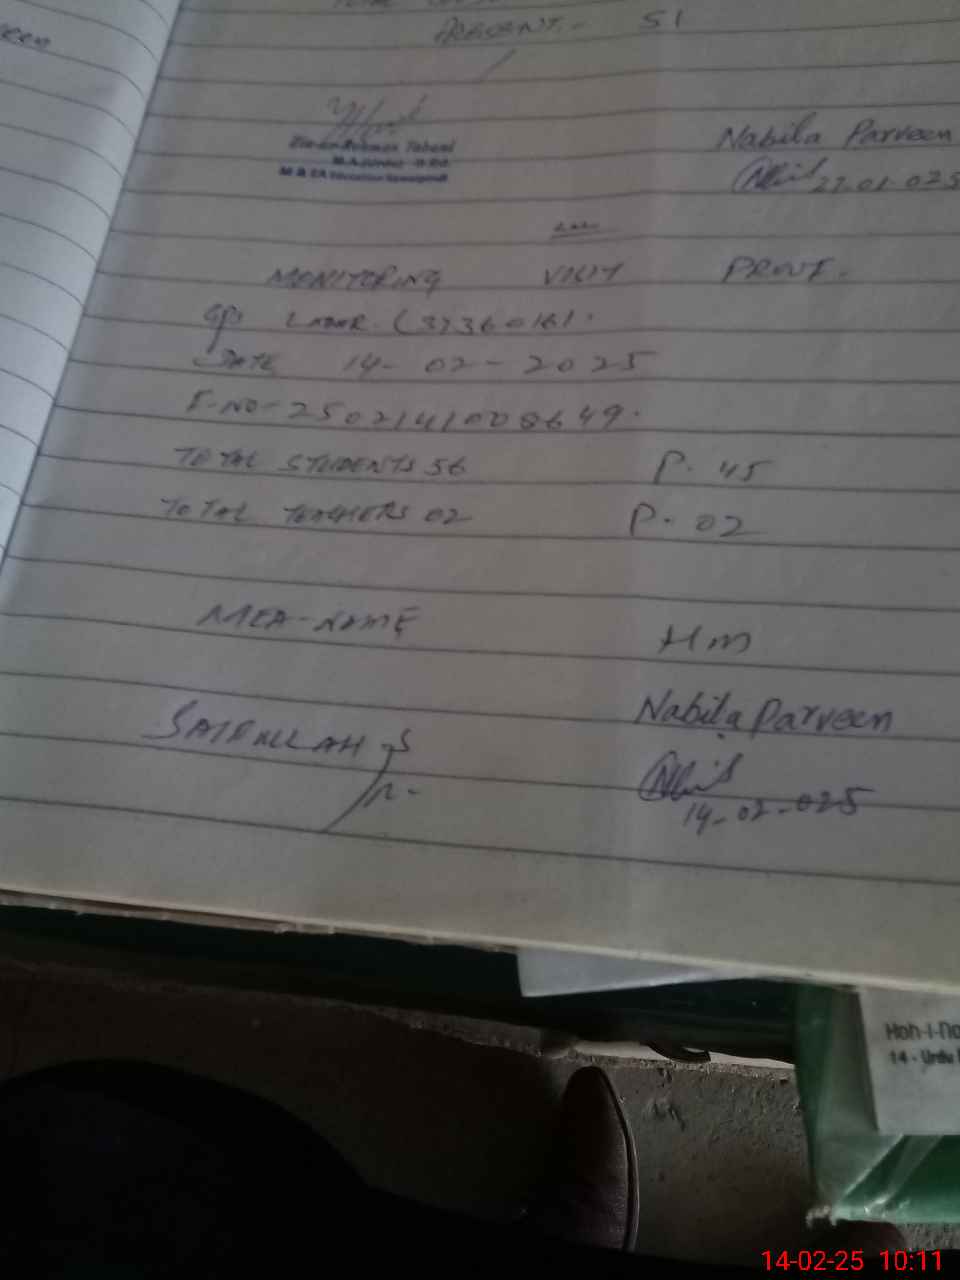 een
PRESENT - 51
Nabila Parveen
27-01-025
Zia-ur-Rehman Tabani
MONITORING VISIT PROUF.
GPS LADAR. (37360161.
DATE 14-02-2025
F-NO-2502141008649.
TOTAL STUDENTS 56 P. 45
TOTAL TEACHERS 02 P. 02
MEA-NAME HM
SAIFULLAH Nabila Parveen
14-02-025
Hoh-I-No
14 - Urdu
14-02-25 10:11